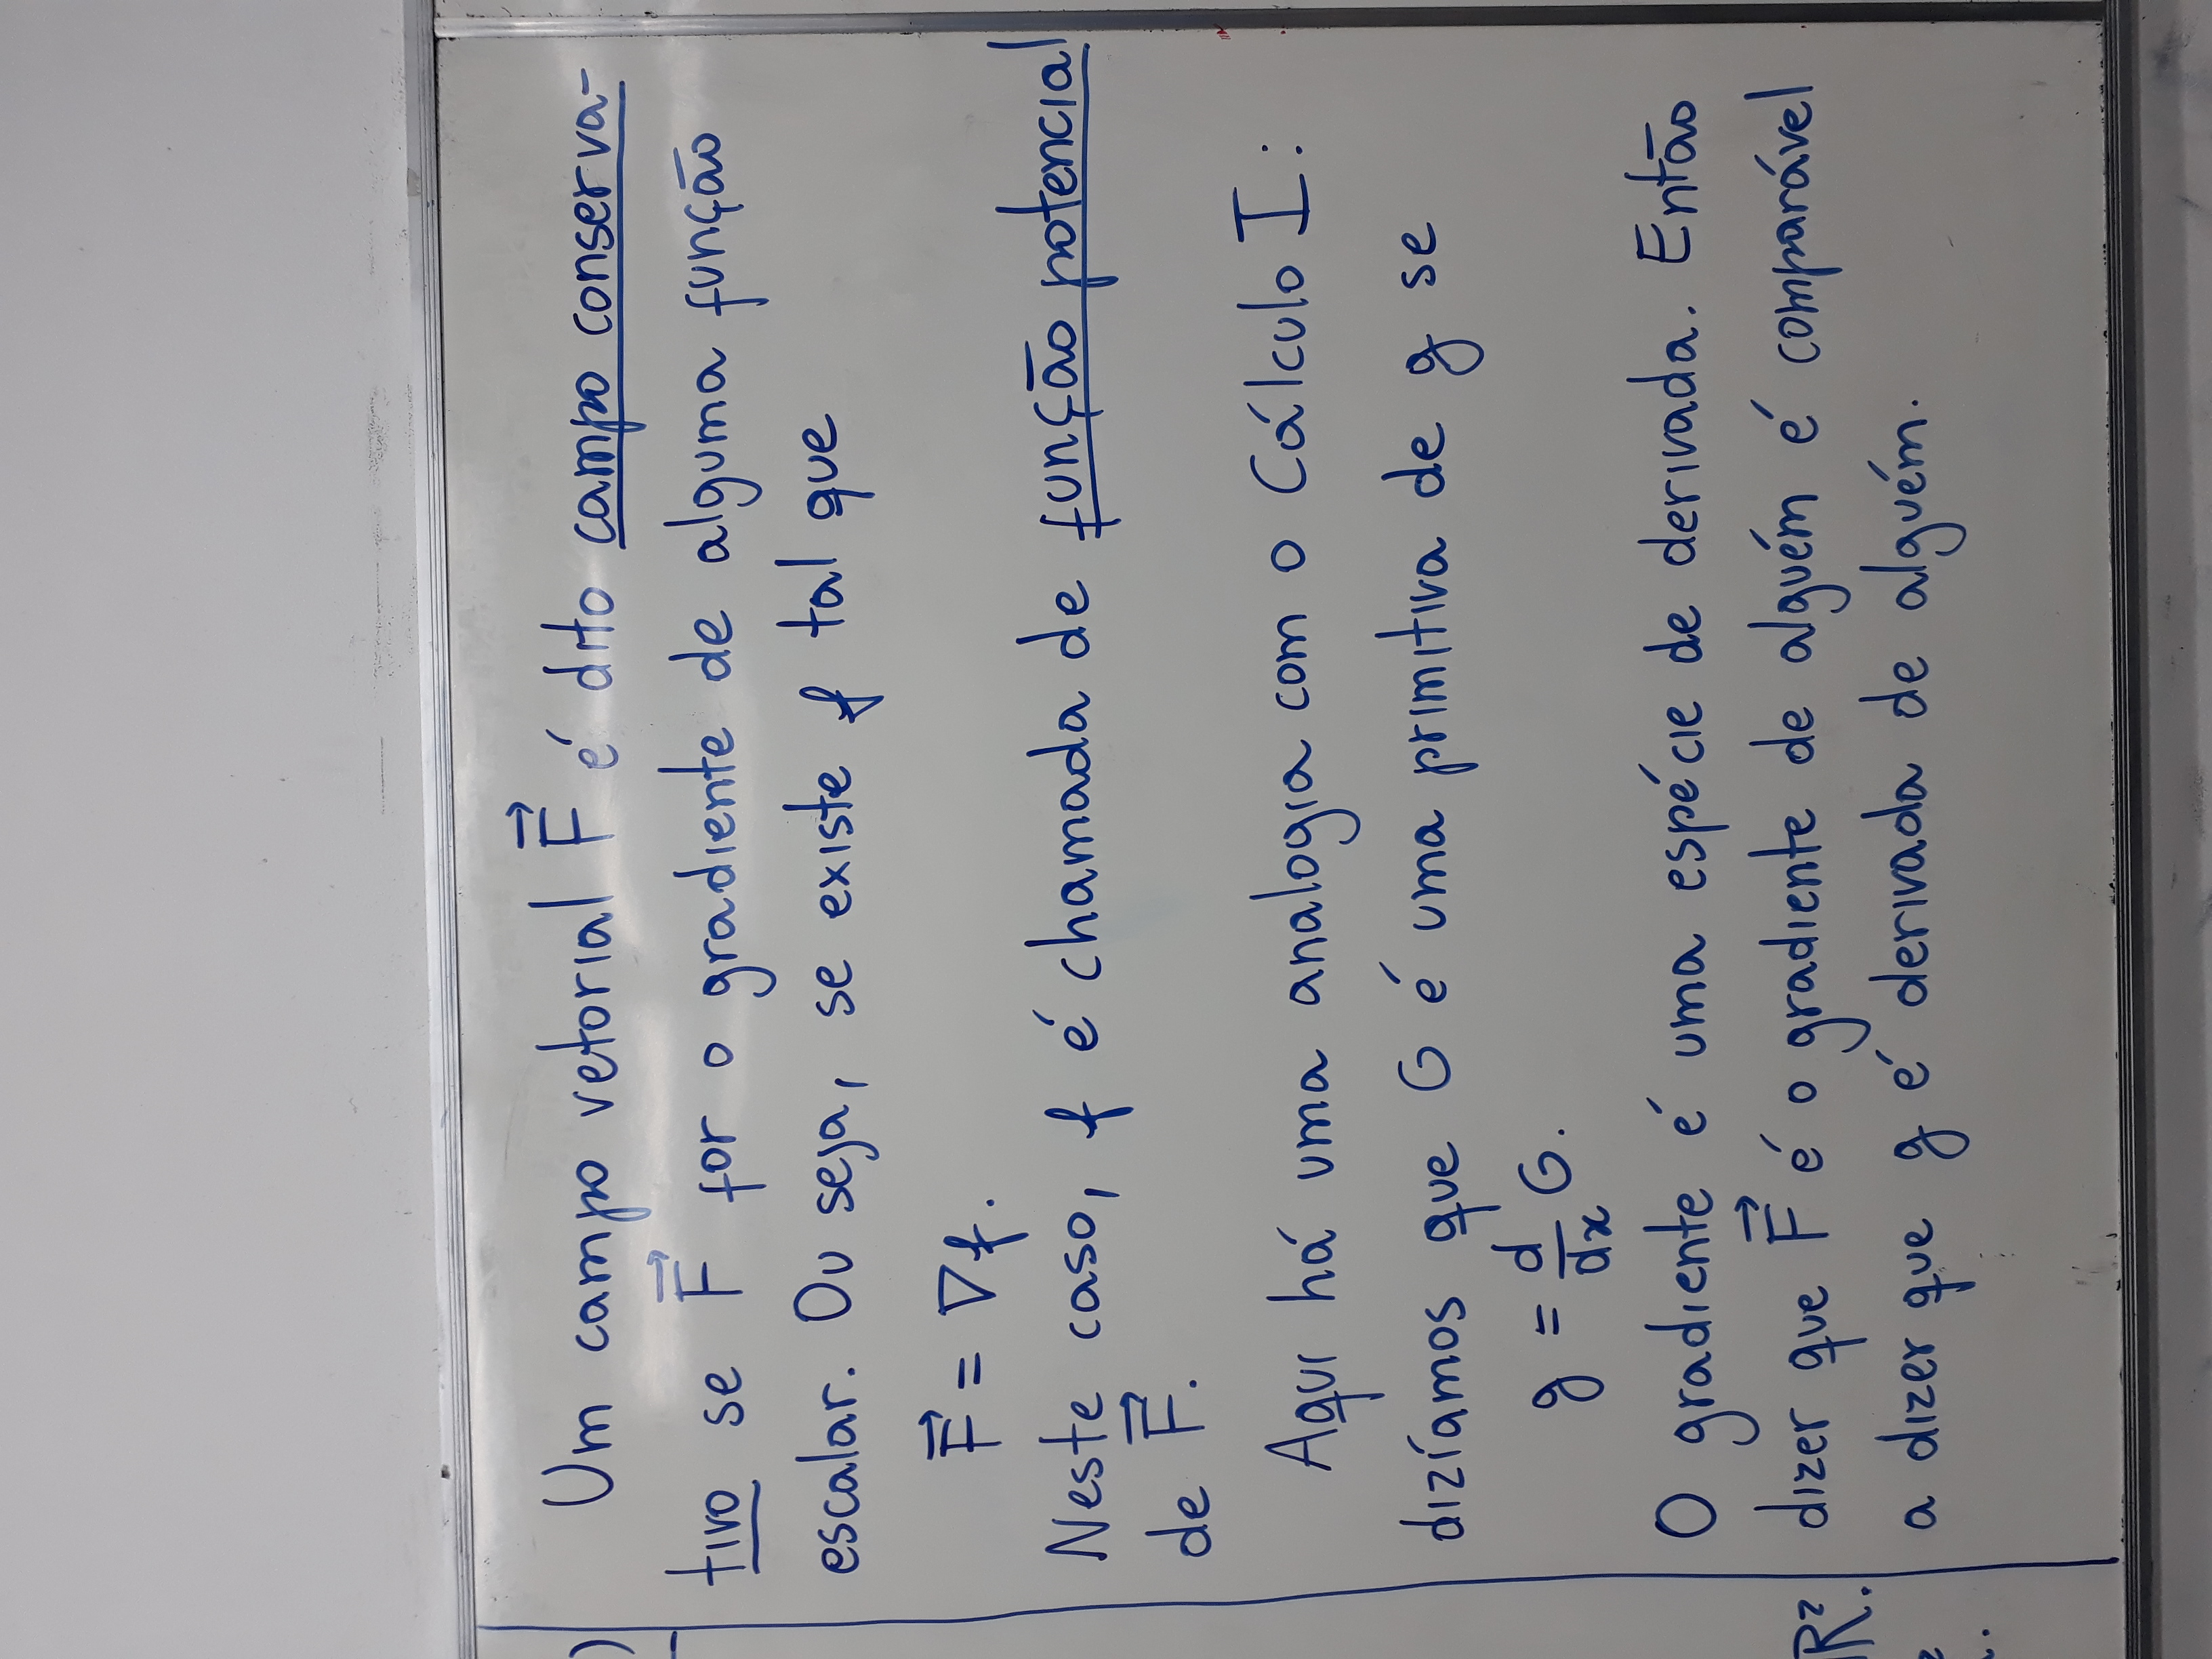 Um campo vetorial F⃗ é dito campo conserva-
tivo se F⃗ for o gradiente de alguma função
escalar. Ou seja, se existe f tal que
F⃗ = ∇f.
Neste caso, f é chamada de função potencial
de F⃗.
Aqui há uma analogia com o Cálculo I:
dizíamos que G é uma primitiva de g se
g = d/dx G.
O gradiente é uma espécie de derivada. Então
dizer que F⃗ é o gradiente de alguém é comparável
a dizer que g é derivada de alguém.
)
R².